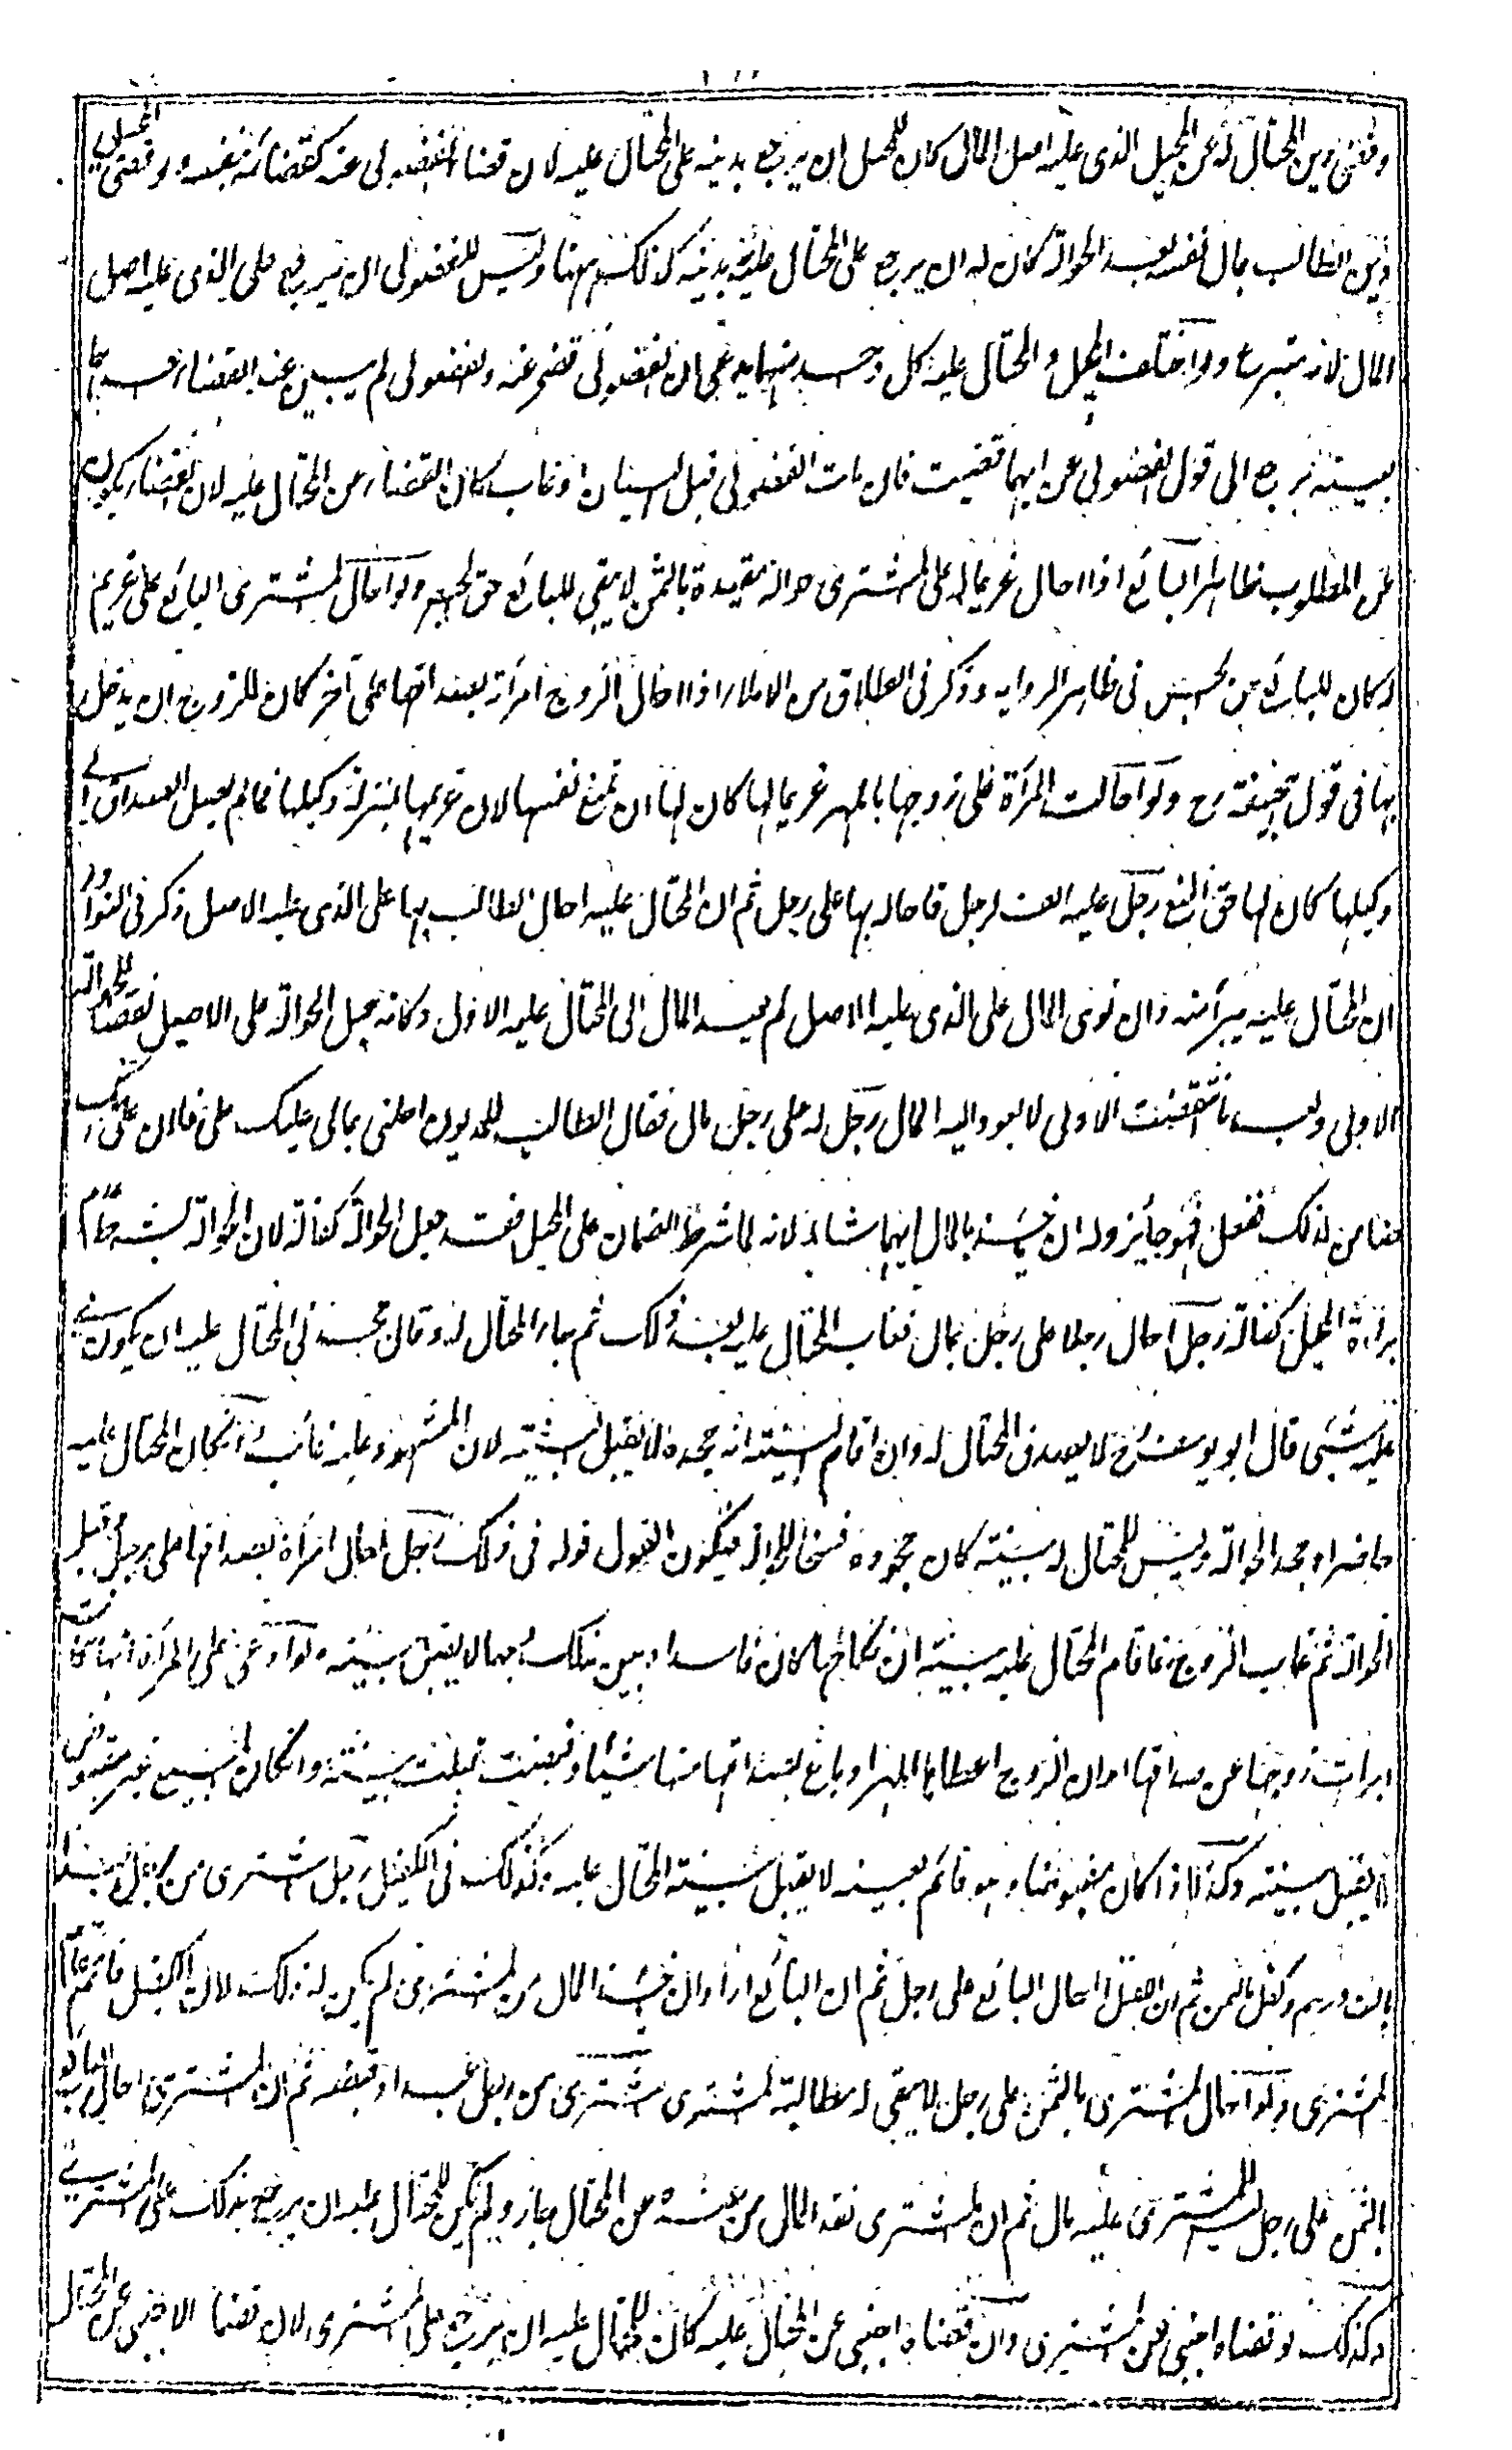 وقضى دين المحتال له عن المحيل الذى عليه اصل المال كان للمحيل ان يرجع بدينه على المحتال عليه لان قضاء الفضولى عنه كقضائه بنفسه ولو قضى المحيل
دين الطالب بمال نفسه بعد الحوالة كان له ان يرجع على المحتال عليه بدينه كذلك ههنا وليس للفضولى ان يرجع على الذى عليه اصل
المال لانه متبرع ولو اختلف المحيل والمحتال عليه كل واحد منهما يدعى ان الفضولى قضى عنه والفضولى لم يبين عند القضاء احدهما
بعينه يرجع الى قول الفضولى عن ايهما قضيت فان مات الفضولى قبل البيان او غاب كان القضاء عن المحتال عليه لان القضاء يكون
عن المطلوب ظاهرا البائع اذا احال غريما له على المشترى حوالة مقيدة بالثمن لا يبقى للبائع حق الحبس ولو احال المشترى البائع على غريم
وكان للبائع حق الحبس فى ظاهر الرواية وذكر فى الطلاق من الاملاء اذا احال الزوج امرأته بصداقها على آخر كان للزوج ان يدخل
بها فى قول ابى حنيفة رح ولو احالت المرأة على زوجها بالمهر غريما لها كان لها ان تمنع نفسها لان غريمها بمنزلة وكيلها فما لم يصل الصداق الى
وكيلها كان لها حق المنع رجل عليه الف لرجل فاحاله بها على رجل ثم ان المحتال عليه احال الطالب بها على الذى عليه الاصل ذكر فى النوادر
ان المحتال عليه يبرأ منه وان توى المال على الذى عليه الاصل لم يعد المال الى المحتال عليه الاول وكانه جعل الحوالة على الاصيل نقضا للحوالة
الاولى وبعد ما انتقضت الاولى لا يعود اليه المال رجل له على رجل مال فقال الطالب للمديون احلنى بمالى عليك على فلان على انك
ضامن لذلك ففعل فهو جائز وله ان يأخذ بالمال ايهما شاء لانه لما شرط الضمان على المحيل فقد جعل الحوالة كفالة لان الحوالة بشرط عدم
براءة المحيل كفالة رجل احال رجلا على رجل بمال فغاب المحتال عليه بعد ذلك ثم جاء المحتال له وقال جحدنى المحتال عليه ان يكون لى
عليه شىء قال ابو يوسف رح لا يصدق المحتال له وان اقام البينة انه جحده لا يقبل بينته لان المشهود عليه غائب وانكان المحتال عليه
حاضرا وجحد الحوالة وليس للمحتال له بينة كان جحوده فسخا للحوالة فيكون القول قوله فى ذلك رجل احال امرأة بصداقها على رجل فقبل
الحوالة ثم غاب الزوج فاقام المحتال عليه بينة ان نكاحها كان فاسدا وبين ذلك وجها لا يقبل بينته ولو ادعى على المرأة انها كانت
ابرأت زوجها عن صداقها او ان الزوج اعطاها المهر او باع بصداقها منها شيئا وقبضت قبلت بينته وانكان المبيع غير مقبوض
لا يقبل بينته وكذا اذا كان مقبوضا وهو قائم بعينه لا يقبل بينة المحتال عليه وكذلك فى الكفيل رجل اشترى من رجل عبدا
بالف درهم وكفل بالثمن ثم ان الكفيل احال البائع على رجل ثم ان البائع اراد ان يأخذ المال من المشترى لم يكن له ذلك لان الكفيل قائم مقام
المشترى ولو احال المشترى بالثمن على رجل لا يبقى له مطالبة المشترى اشترى من رجل عبدا وقبضه ثم ان المشترى احال البائع
بالثمن على رجل ليس للمشترى عليه مال ثم ان المشترى نقد المال من عنده عن المحتال جاز ولم يكن للمحتال عليه ان يرجع بذلك على المشترى
وكذلك لو قضاه اجنبى عن المشترى وان قضاه اجنبى عن المحتال عليه كان للمحتال عليه ان يرجع على المشترى لان قضاء الاجنبى عن المحتال